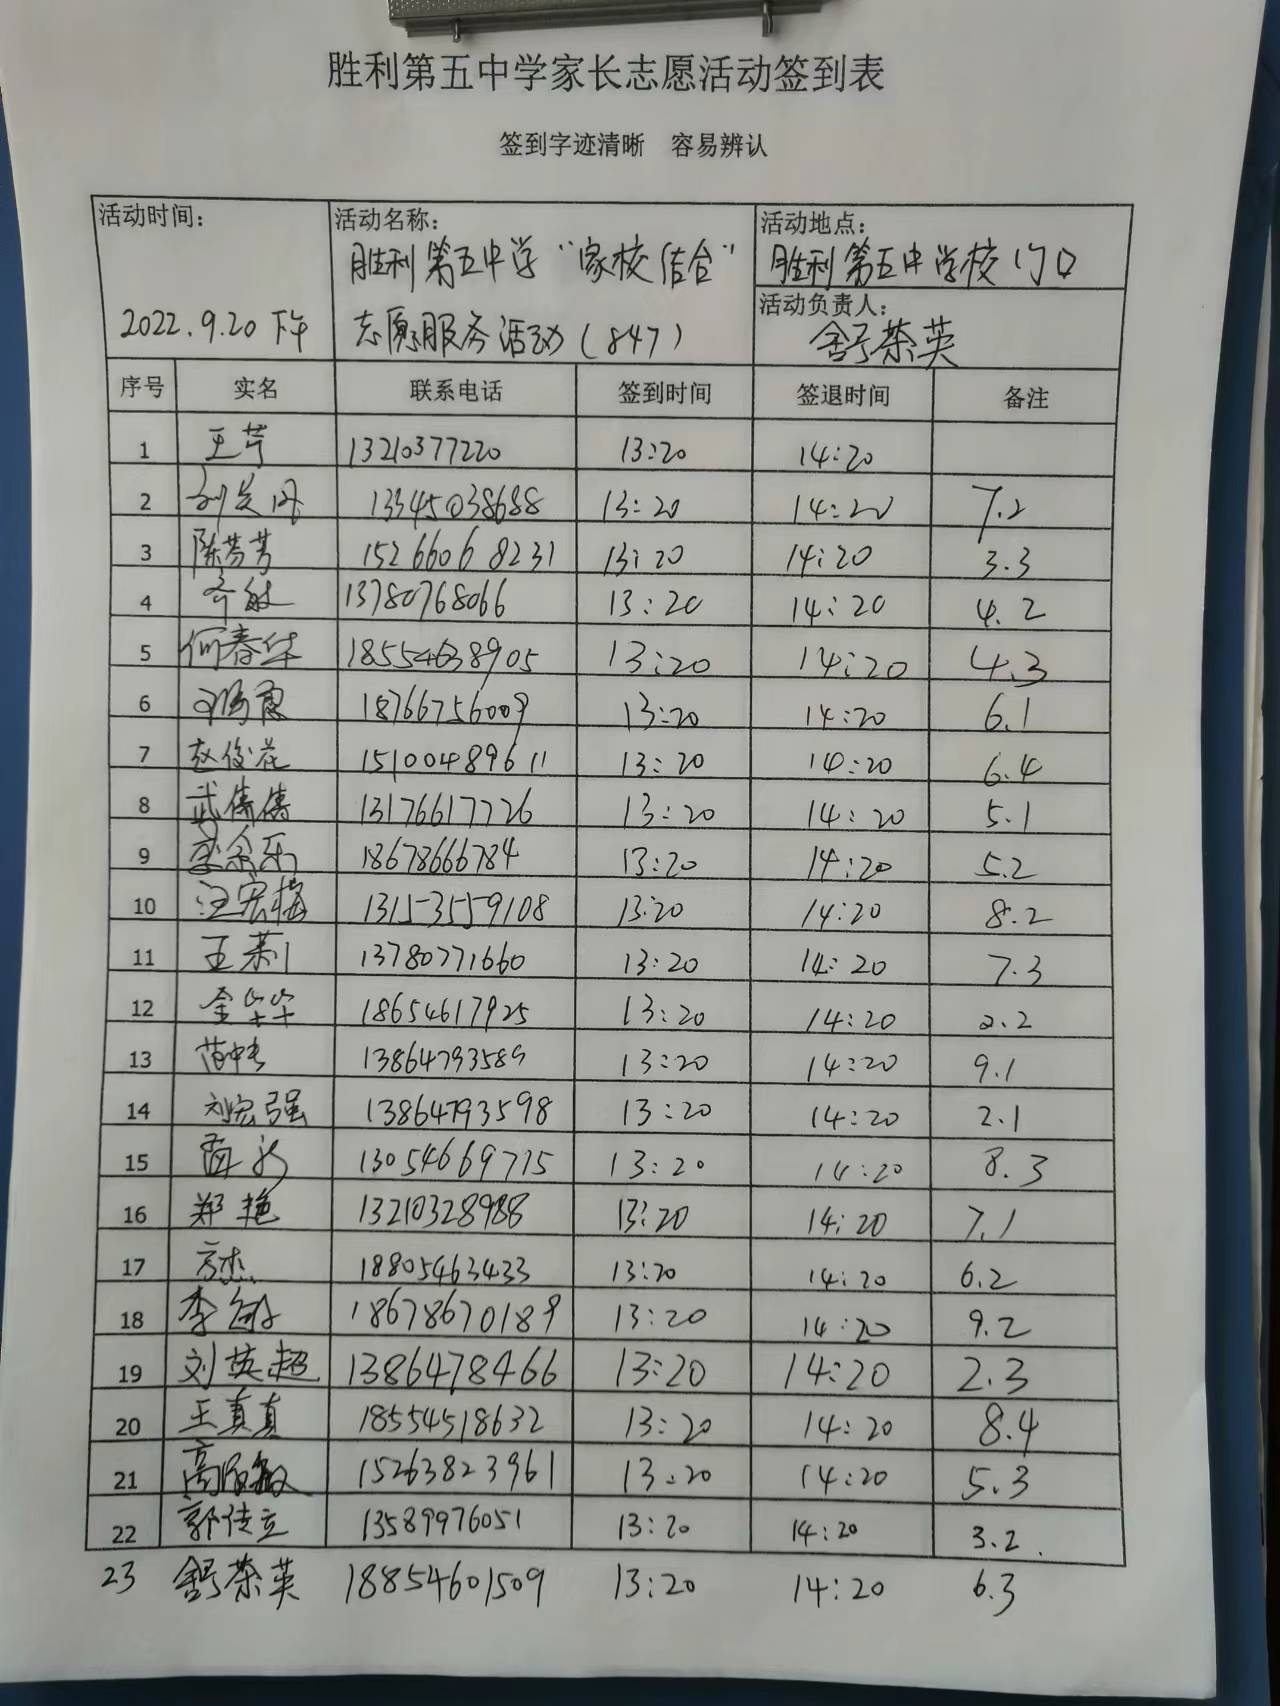 胜利第五中学家长志愿活动签到表
签到字迹清晰 容易辨认
活动时间: 2022.9.20下午
活动名称: 胜利第五中学“家校结合”
志愿服务活动(847)
活动地点: 胜利第五中学校门口
活动负责人: 舒荣英
序号 实名 联系电话 签到时间 签退时间 备注
1 王芹 13210377220 13:20 14:20
2 13345038688 13:20 14:20 7.2
3 陈芳芳 15266068231 13:20 14:20 3.3
4 13780768066 13:20 14:20 4.2
5 何春华 18554638905 13:20 14:20 4.3
6 18766756009 13:20 14:20 6.1
7 赵俊花 15100489611 13:20 14:20 6.4
8 武倩倩 13176617726 13:20 14:20 5.1
9 18678666784 13:20 14:20 5.2
10 汪宏梅 13153559108 13:20 14:20 8.2
11 王莉 13780771660 13:20 14:20 7.3
12 18654617925 13:20 14:20 2.2
13 13864793589 13:20 14:20 9.1
14 刘宏强 13864793598 13:20 14:20 2.1
15 13054669715 13:20 14:20 8.3
16 郑艳 13210328988 13:20 14:20 7.1
17 方杰 18805463433 13:20 14:20 6.2
18 李敏 18678670189 13:20 14:20 9.2
19 刘英超 1386478466 13:20 14:20 2.3
20 王真真 18554518632 13:20 14:20 8.4
21 15263823961 13:20 14:20 5.3
22 郭传立 13589976051 13:20 14:20 3.2.
23 舒荣英 18854601509 13:20 14:20 6.3